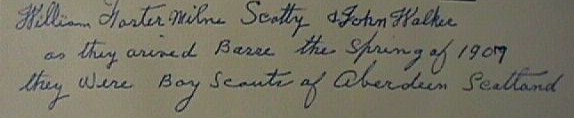 William Foster Milne Scotty & John Walker
as they arived Barre the Spring of 1907
they Were Boy Scouts of Aberdeen Scotland